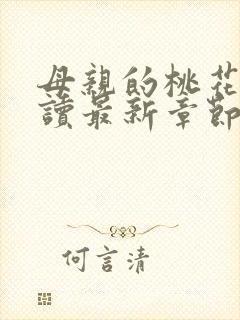 母親的桃花
讀最新章節
何言清